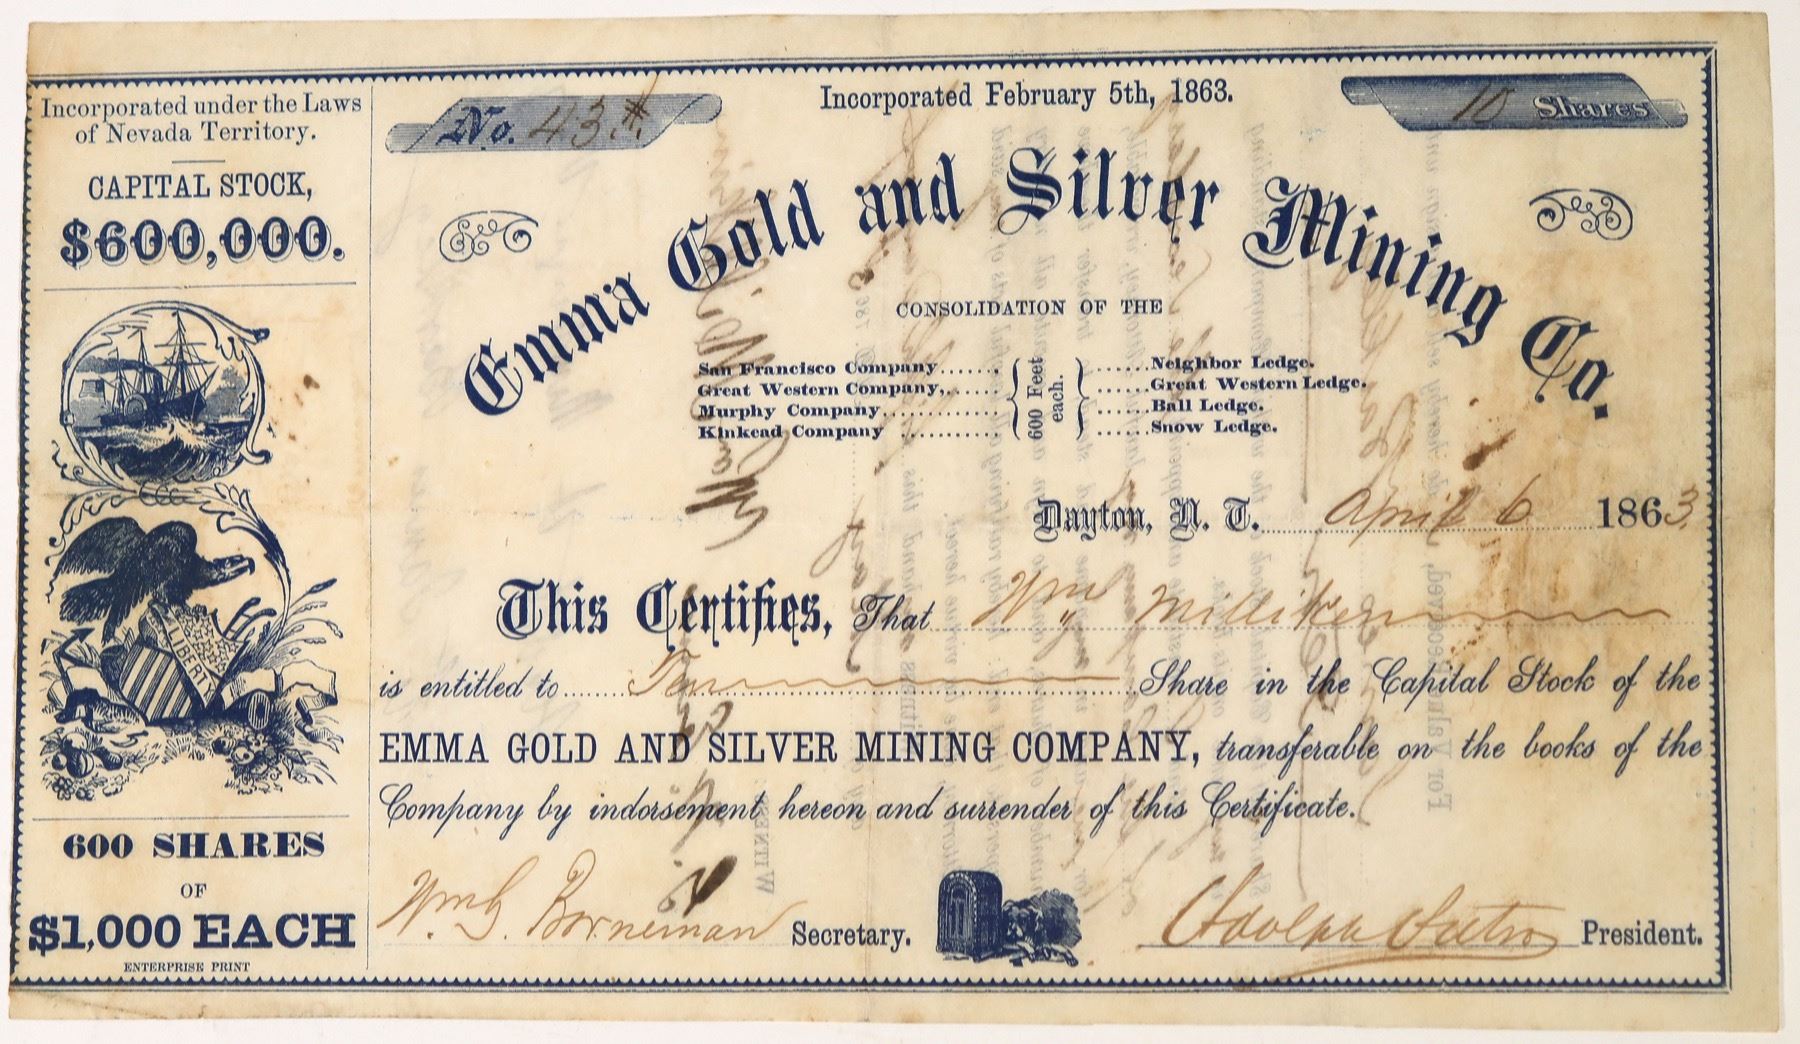 Incorporated under the Laws
of Nevada Territory.
CAPITAL STOCK,
$600,000.
LIBERTY
600 SHARES
OF
$1,000 EACH
ENTERPRISE PRINT
No. 43
Incorporated February 5th, 1863.
10 Shares
Emma Gold and Silver Mining Co.
CONSOLIDATION OF THE
San Francisco Company...... 600 Feet each. ......Neighbor Ledge.
Great Western Company,...... ......Great Western Ledge.
Murphy Company............ ......Ball Ledge.
Kinkead Company ........... ......Snow Ledge.
Dayton, N. T. April 6 1863.
This Certifies, That Wm Milliken
is entitled to Ten Share in the Capital Stock of the
EMMA GOLD AND SILVER MINING COMPANY, transferable on the books of the
Company by indorsement hereon and surrender of this Certificate.
Wm G. Borneman Secretary. Adolph Sutro President.